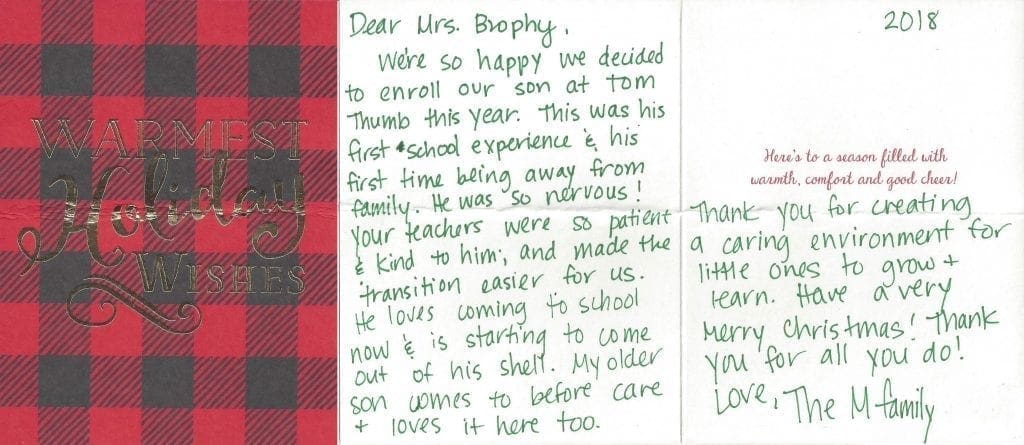 WARMEST
Holiday
WISHES
Dear Mrs. Brophy,
We're so happy we decided
to enroll our son at Tom
Thumb this year. This was his
first school experience & his
first time being away from
family. He was so nervous!
your teachers were so patient
& kind to him, and made the
transition easier for us.
He loves coming to school
now & is starting to come
out of his shell. My older
son comes to before care
+ loves it here too.
2018
Here's to a season filled with
warmth, comfort and good cheer!
Thank you for creating
a caring environment for
little ones to grow +
learn. Have a very
Merry Christmas! Thank
you for all you do!
Love, The M family